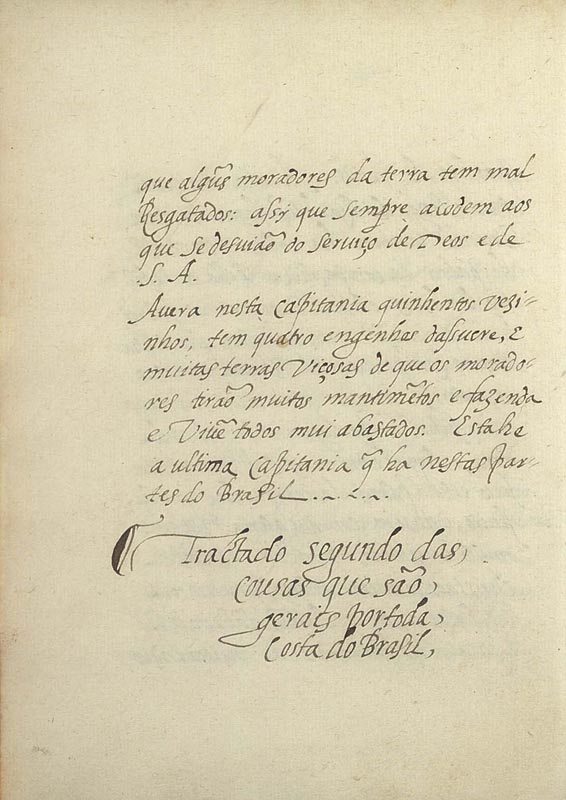 que algũs moradores da terra tem mal
Resgatados: assy que sempre acodem aos
que se desuião do seruiço de Deos e de
S. A.
Auera nesta capitania quinhentos vezi-
nhos, tem quatro engenhos dassucre, E
muitas terras Viçosas de que os morado-
res tirão muitos mantimẽtos e fazenda
e Viuẽ todos mui abastados. Esta he
a ultima capitania q̃ ha nestas par-
tes do Brasil
Tractado segundo das,
cousas que são,
geraes por toda,
Costa do Brasil,